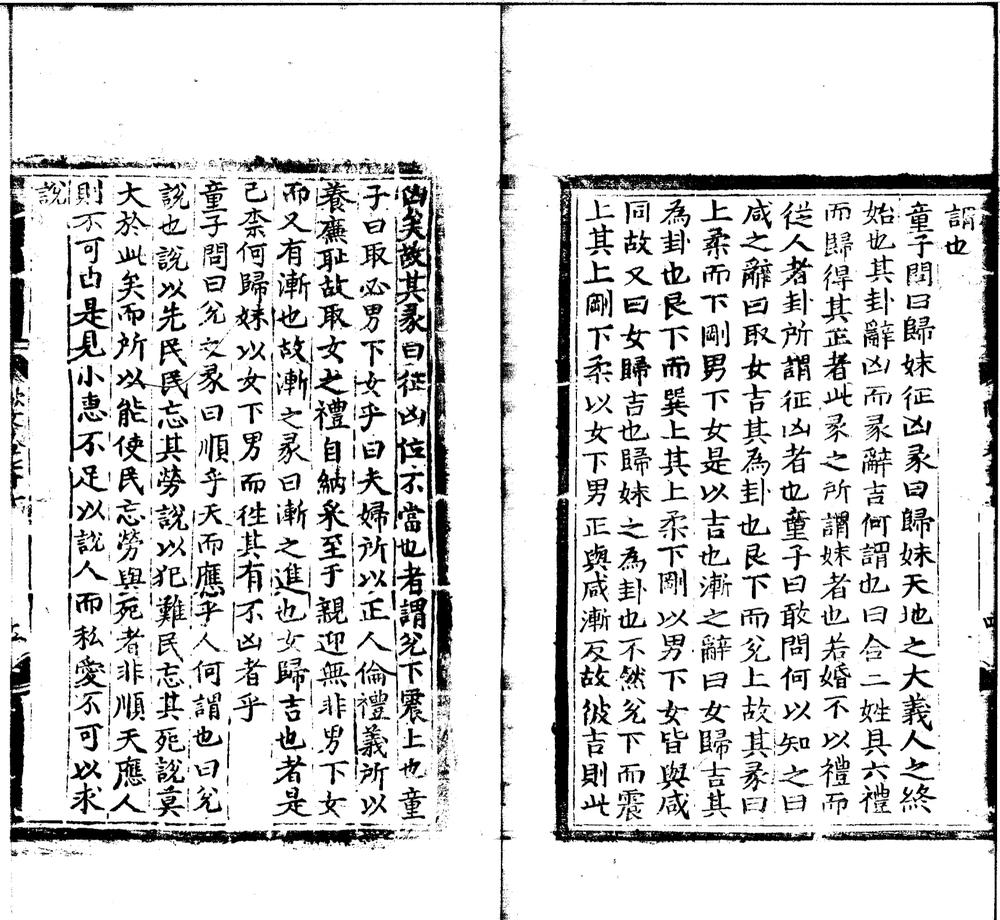 謂也
童子問曰歸妹征凶彖曰歸妹天地之大義人之終
始也其卦辭凶而彖辭吉何謂也曰合二姓具六禮
而歸得其正者此彖之所謂妹者也若婚不以禮而
從人者卦所謂征凶者也童子曰敢問何以知之曰
咸之辭曰取女吉其為卦也艮下而兊上故其彖曰
上柔而下剛男下女是以吉也漸之辭曰女歸吉其
為卦也艮下而巽上其上柔下剛以男下女皆與咸
同故又曰女歸吉也歸妹之為卦也不然兊下而震
上其上剛下柔以女下男正與咸漸反故彼吉則此
凶矣故其彖曰征凶位不當也者謂兊下震上也童
子曰取必男下女乎曰夫婦所以正人倫禮義所以
養廉恥故取女之禮自納采至于親迎無非男下女
而又有漸也故漸之彖曰漸之進也女歸吉也者是
已柰何歸妹以女下男而徃其有不凶者乎
童子問曰兊之彖曰順乎天而應乎人何謂也曰兊
說也說以先民民忘其勞說以犯難民忘其死說莫
大於此矣而所以能使民忘勞與死者非順天應人
則不可由是見小惠不足以說人而私愛不可以求
說